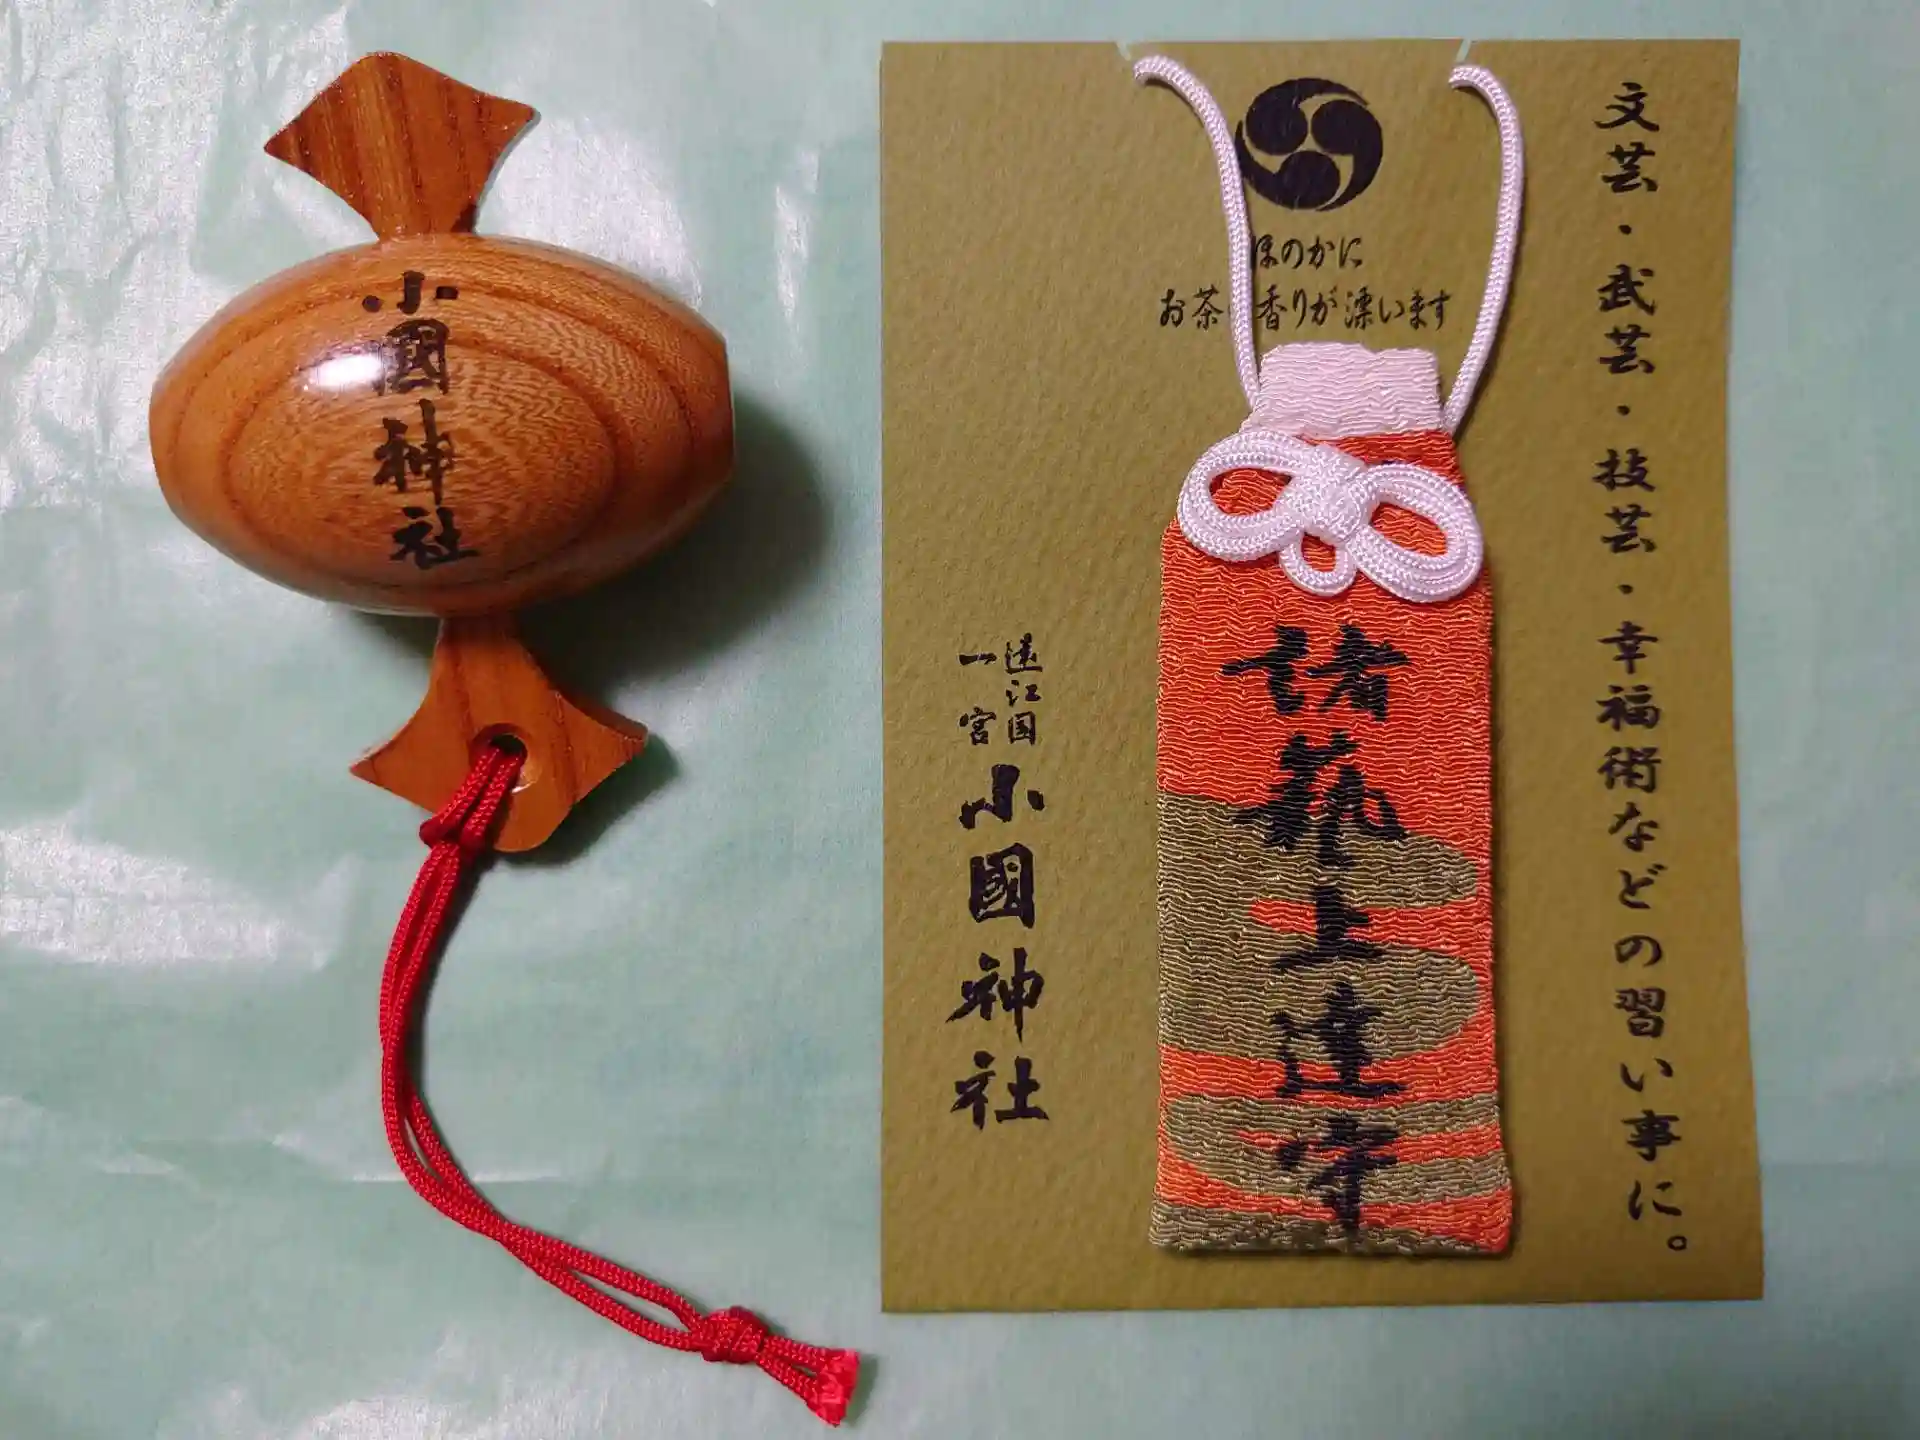 小國神社
文芸・武芸・技芸・幸福術などの習い事に。
ほのかに
お茶 香りが漂います
諸藝上達守
遠江国
一宮
小國神社